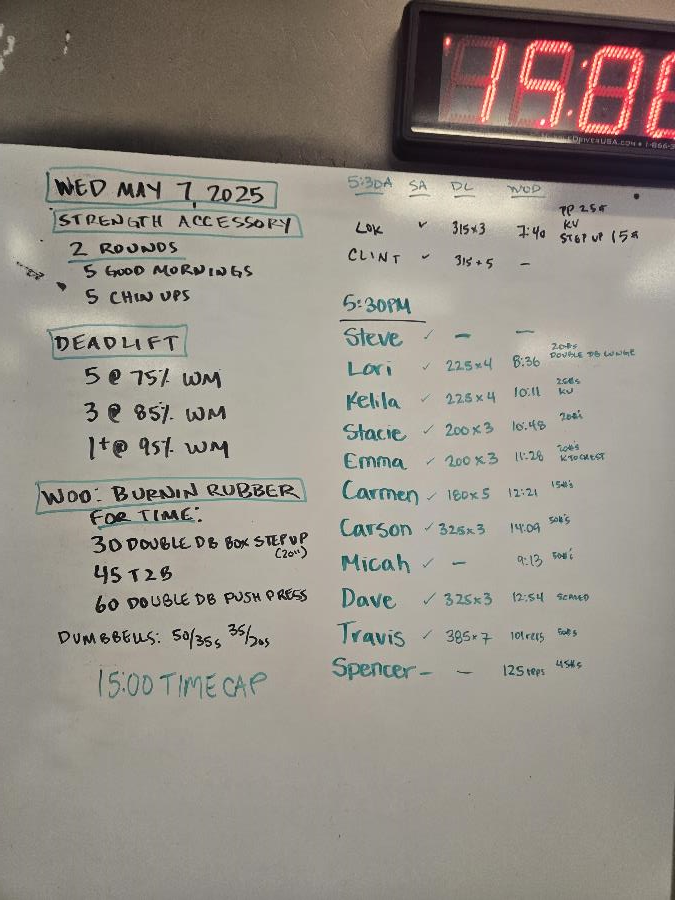 15:0
DRIVERUSA.COM • 1-866-3
WED MAY 7, 2025
STRENGTH ACCESSORY
2 ROUNDS
5 GOOD MORNINGS
5 CHIN UPS
DEADLIFT
5 @ 75% WM
3 @ 85% WM
1+ @ 95% WM
WOD: BURNIN RUBBER
FOR TIME:
30 DOUBLE DB BOX STEP UP
(20")
45 T2B
60 DOUBLE DB PUSH PRESS
DUMBBELLS: 50/35s 35/20s
15:00 TIME CAP
5:30A SA DL WOD
LOK ✓ 315x3 7:40 PP 25#
KV
STEP UP 15#
CLINT ✓ 315+5 –
5:30PM
Steve ✓ – –
Lori ✓ 225x4 8:36 20#s
DOUBLE DB LUNGE
Kelila ✓ 225x4 10:11 25#s
KV
Stacie ✓ 200x3 10:48 20#s
Emma ✓ 200x3 11:28 20#s
K TO CHEST
Carmen ✓ 180x5 12:21 15#'s
Carson ✓ 325x3 14:09 50#'s
Micah ✓ – 9:13 50#'s
Dave ✓ 325x3 12:54 SCALED
Travis ✓ 385x7 101 reps 50#s
Spencer – – 125 reps 45#s